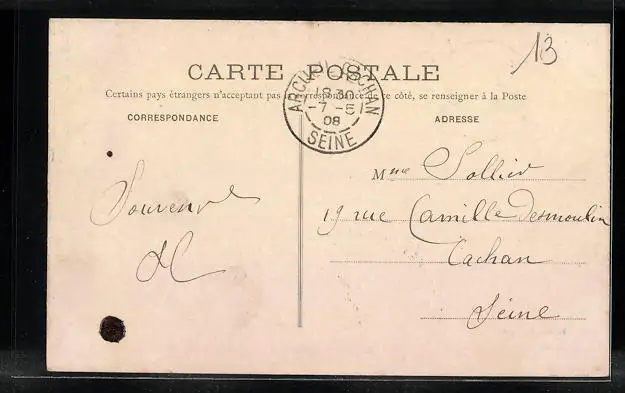 13
CARTE POSTALE
Certains pays étrangers n'acceptant pas la correspondance de ce côté, se renseigner à la Poste
ARCUEIL-CACHAN
18 30
-7 -5
08
SEINE
CORRESPONDANCE
ADRESSE
Souvenir
Mme Sollier
19 rue Camille Desmoulin
Cachan
Seine